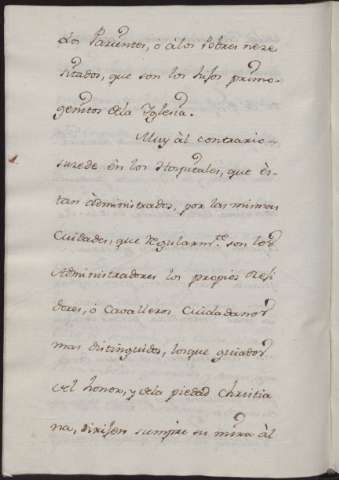 los Parientes, o à los Pobres nece
sitados, que son los hijos primo-
genitos de la Iglesia.
Muy àl contrario
sucede en los Hospitales, que ès-
tan àdministrados, por las mismas
Ciudades, que regularm.te son los
Administradores los propios Resi
dores, ò Cavalleros Ciudadanos
mas distinguidos, los que guiados
del honor, y de la piedad Christia
na, dirijen siempre su mira àl